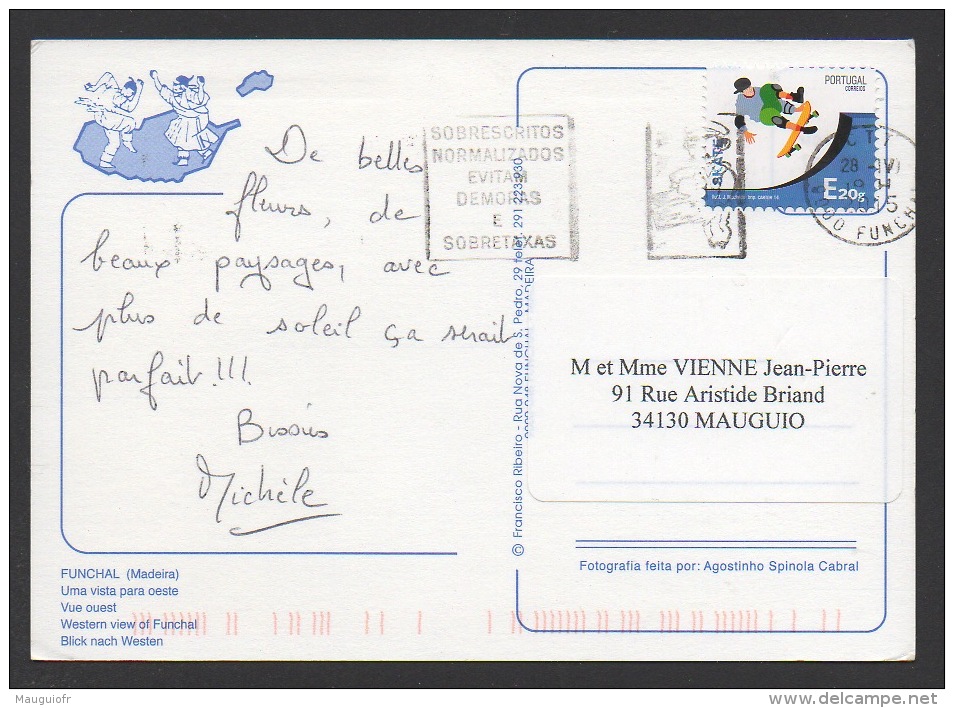 De belles
fleurs, de
beaux paysages, avec
plus de soleil ça serait
parfait!!!
Bisous
Michèle
SOBRESCRITOS
NORMALIZADOS
EVITAM
DEMORAS
E
SOBRETAXAS
PORTUGAL
CORREIOS
SKATE
E20g
CTT
FUNCHAL
© Francisco Ribeiro - Rua Nova de S. Pedro, 29 telef. 291 223 930
M et Mme VIENNE Jean-Pierre
91 Rue Aristide Briand
34130 MAUGUIO
Fotografia feita por: Agostinho Spinola Cabral
FUNCHAL (Madeira)
Uma vista para oeste
Vue ouest
Western view of Funchal
Blick nach Westen
Mauguiofr
www.delcampe.net